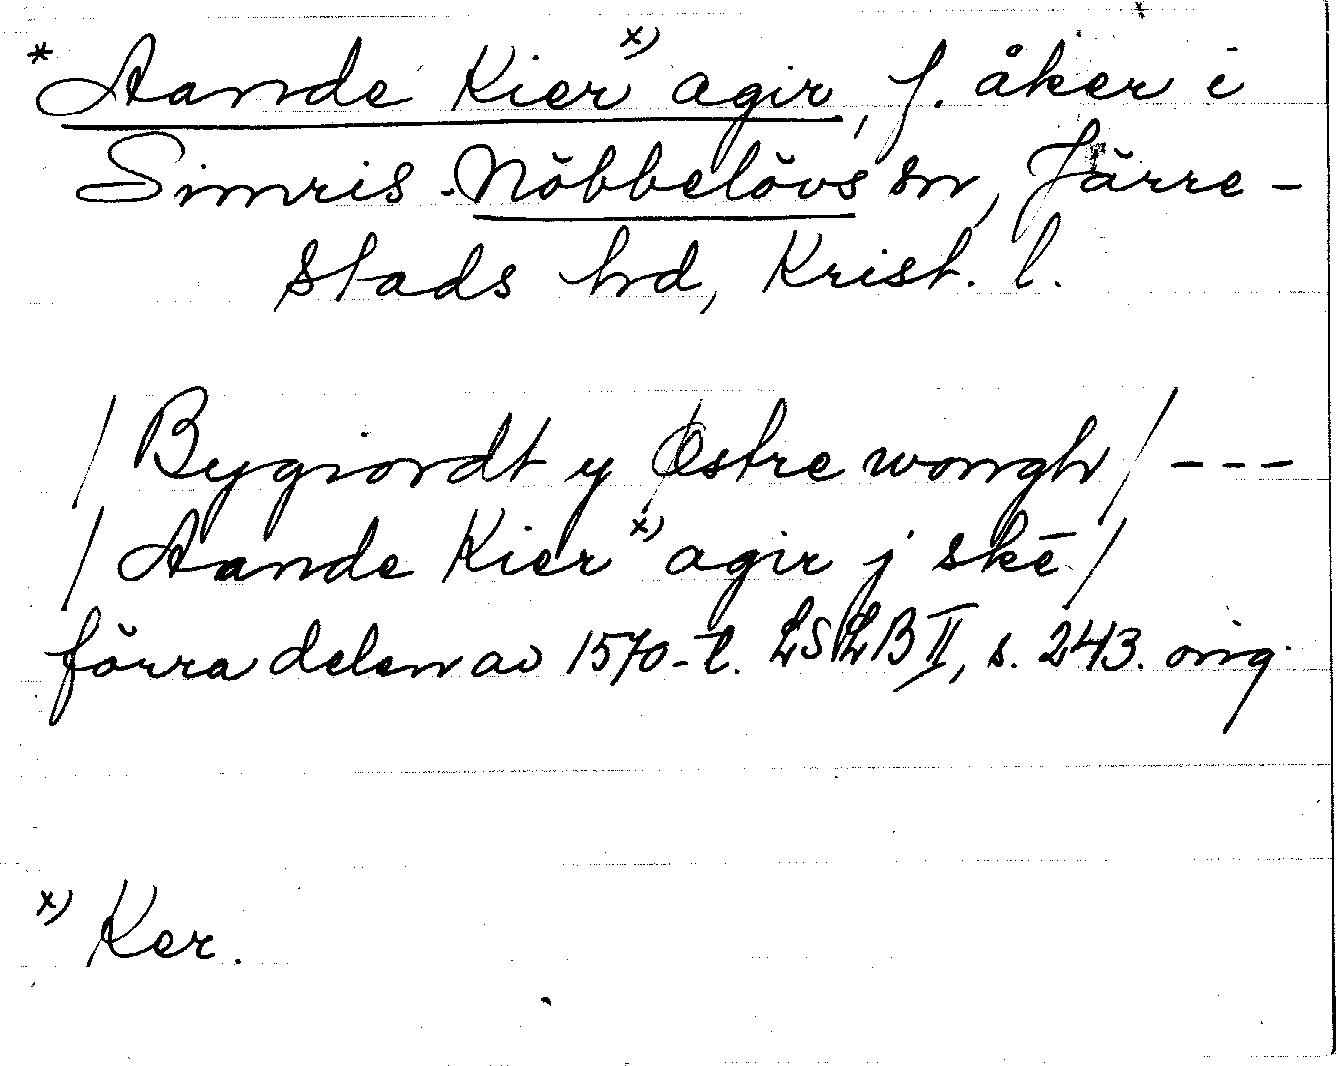 * Aande Kier x) agir, f. åker i
Simris-Nöbbelövs sn, Järre-
stads hd, Krist. l.
/ Bygiordt y Østre wongh / ---
/ Aande Kier x) agir j skē /
förra delen av 1570-t. LSLB II, s. 243. orig.
x) Ker.